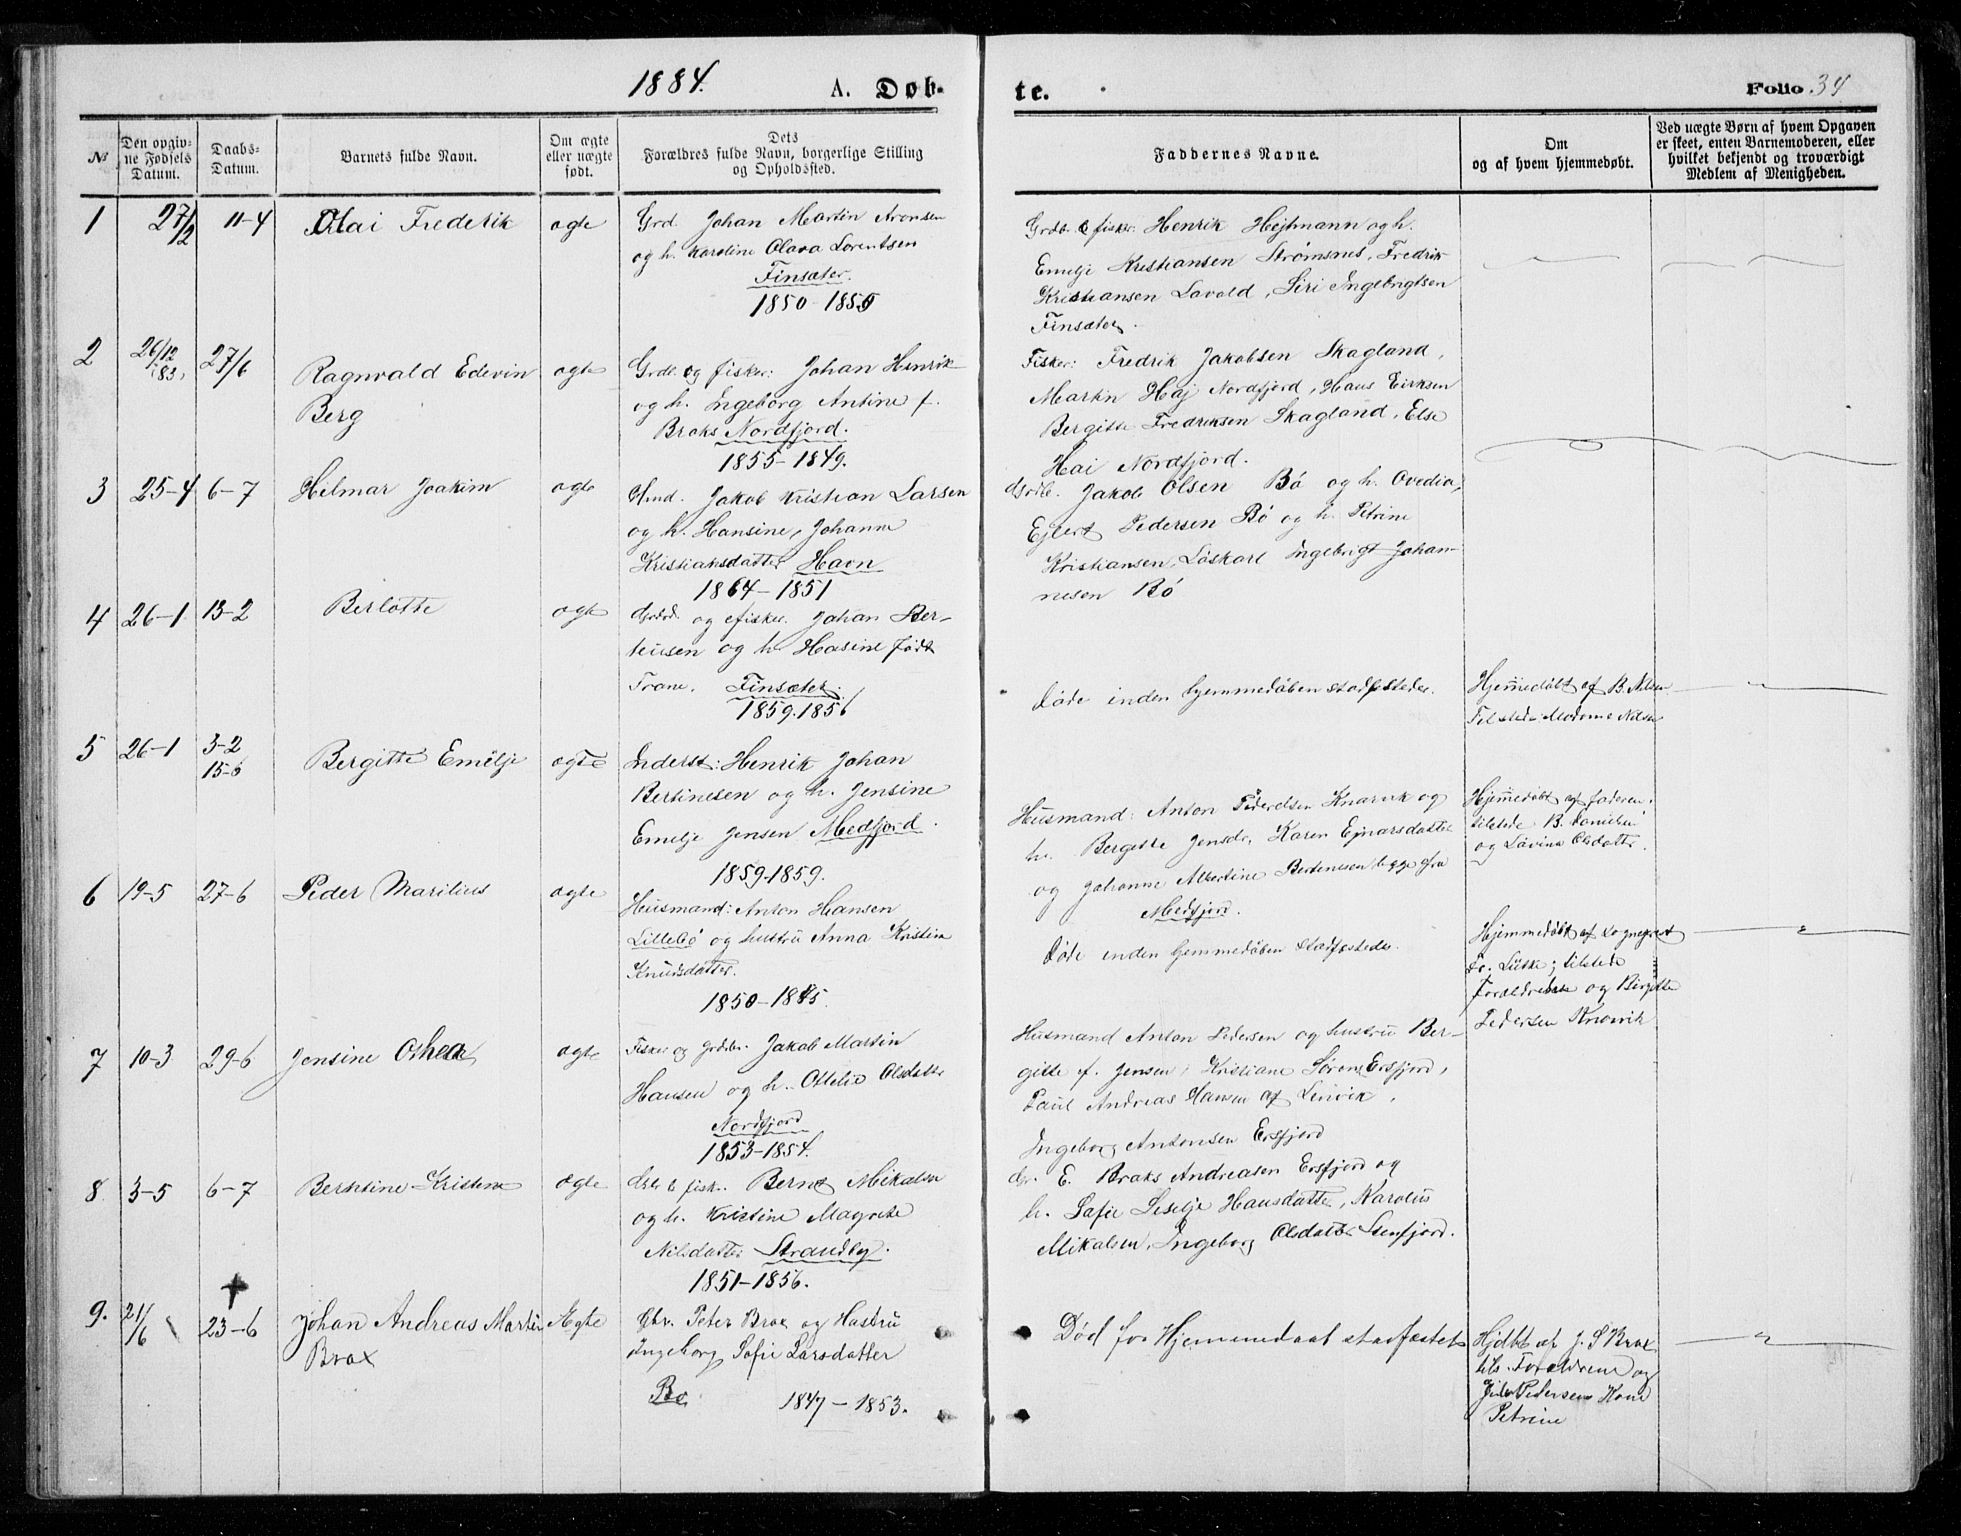 1884.
A. Døb-
te.
Folio 34
№
Den opgiv-
ne Fødsels
Datum.
Daabs-
Datum.
Barnets fulde Navn.
Om ægte
eller uægte
født.
Dets
Forældres fulde Navn, borgerlige Stilling
og Opholdssted.
Faddernes Navne.
Om
og af hvem hjemmedøbt.
Ved uægte Børn af hvem Opgaven
er skeet, enten Barnemoderen, eller
hvilket bekjendt og troværdigt
Medlem af Menigheden.
1
27/2
11-4
Olai Frederik
ægte
Grd. Johan Martin Aronsen
og h. Karoline Olava Lorentsen
Finsæter.
1850-1855
Grdb. & fisker Henrik Hejtmann og h.
Emelje Kristiansen Strømsnes, Fredrik
Kristiansen Lavold, Siri Ingebrigtsen
Finsæter.
2
26/12
83
27/6
Ragnvald Edevin
Berg
ægte
Grdb. og fisker: Johan Henrik
og h. Ingeborg Antine f.
Braks Nordfjord.
1855-1849.
Fisker: Fredrik Jakobsen Skagland,
Martin Haj Nordfjord, Hans Eriksen
Bergitte Fredriksen Skagland, Else
Hai Nordfjord.
3
25-4
6-7
Hilmar Joakim
ægte
Hmd. Jakob Kristian Larsen
og h. Hansine, Johanne
Kristiansdatter Havn
1864-1851
Grdb. Jakob Olsen Bø og h. Ovedia,
Ejlert Pedersen Bø og h. Petrine
Kristiansen, Løskarl Ingebrigt Johan-
nesen Bø
4
26-1
13-2
Berlotte
ægte
og fisker. Johan Ber-
teusen og h. Hasine født
Trane. Finsæter
1859.1856
Døde inden hjemmedåben stadfæstedes.
Hjemmedøbt af B. Nilsen
Tilstede Madame Nilsen
5
26-1
3-2
15-6
Bergitte Emilje
ægte
Inderst: Henrik Johan
Bertinesen og h. Jensine
Emelje Jensen Medfjord.
1859.1859.
Husmand: Anton Pedersen Knarvik og
h. Bergitte Jensdr, Karen Ejnarsdatter
og Johanne Albertine Bertinesen begge fra
Medfjord.
Hjemmedøbt af faderen.
tilstede B. Danielsen
og Lavina Olsdatter.
6
19-5
27-6
Peder Marilius
ægte
Husmand: Anton Hansen
Lillebø og hustru Anna Kristine
Knudsdatter.
1850-1845.
Døde inden hjemmedåben stadfæstedes.
Hjemmedøbt af Sognepræst
Lütke; tilstede
Forældrene og Birgitte
Pedersen Knarvik
7
10-3
29-6
Jensine Othea
ægte
Fisker og grdbr. Jakob Martin
Hansen og h. Ottelie Olsdatter
Nordfjord
1853-1854.
Husmand Anton Pedersen og hustru Ber-
gitte f. Jensen, Kristiane Sørens Ersfjord,
Paul Andreas Hansen af Lenvik,
Ingeborg Antonsen Ersfjord
8
3-5
6-7
Berntine Kristine
ægte
& fisk. Bernt Mikalsen
og h. Kristine Magrete
Nilsdatter Strandby.
1851-1856.
Gr. E. Braks Andreasen Ersfjord og
h. Safie Seselje Hansdatter, Karolus
Mikalsen, Ingeborg Olsdatter Stenfjord.
9.
21/6
23-6
Johan Andreas Martin
Brox
Ægte
Gbr. Peter Brox og Hustru
Ingeborg Sofie Larsdatter
Bø 1847-1853.
Død før Hjemmedaab stadfæstet
Hjdbt af J. S Brox
tils. Forældrene og
Pedersens Kone
Petrine